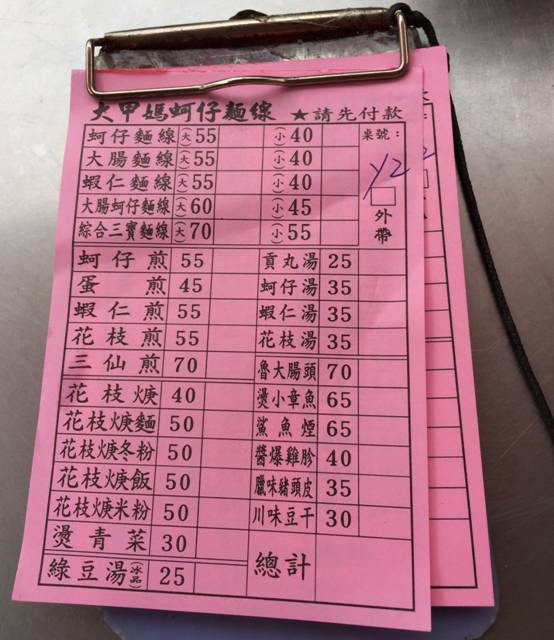 大甲媽蚵仔麵線 ★請先付款
蚵仔麵線 (大)55 (小)40 桌號：
大腸麵線 (大)55 (小)40 Y2
蝦仁麵線 (大)55 (小)40
大腸蚵仔麵線 (大)60 (小)45 外帶
綜合三寶麵線 (大)70 (小)55
蚵仔煎 55 貢丸湯 25
蛋煎 45 蚵仔湯 35
蝦仁煎 55 蝦仁湯 35
花枝煎 55 花枝湯 35
三仙煎 70 魯大腸頭 70
花枝焿 40 燙小章魚 65
花枝焿麵 50 鯊魚煙 65
花枝焿冬粉 50 醬爆雞胗 40
花枝焿飯 50 臘味豬頭皮 35
花枝焿米粉 50 川味豆干 30
燙青菜 30 總計
綠豆湯(冰品) 25